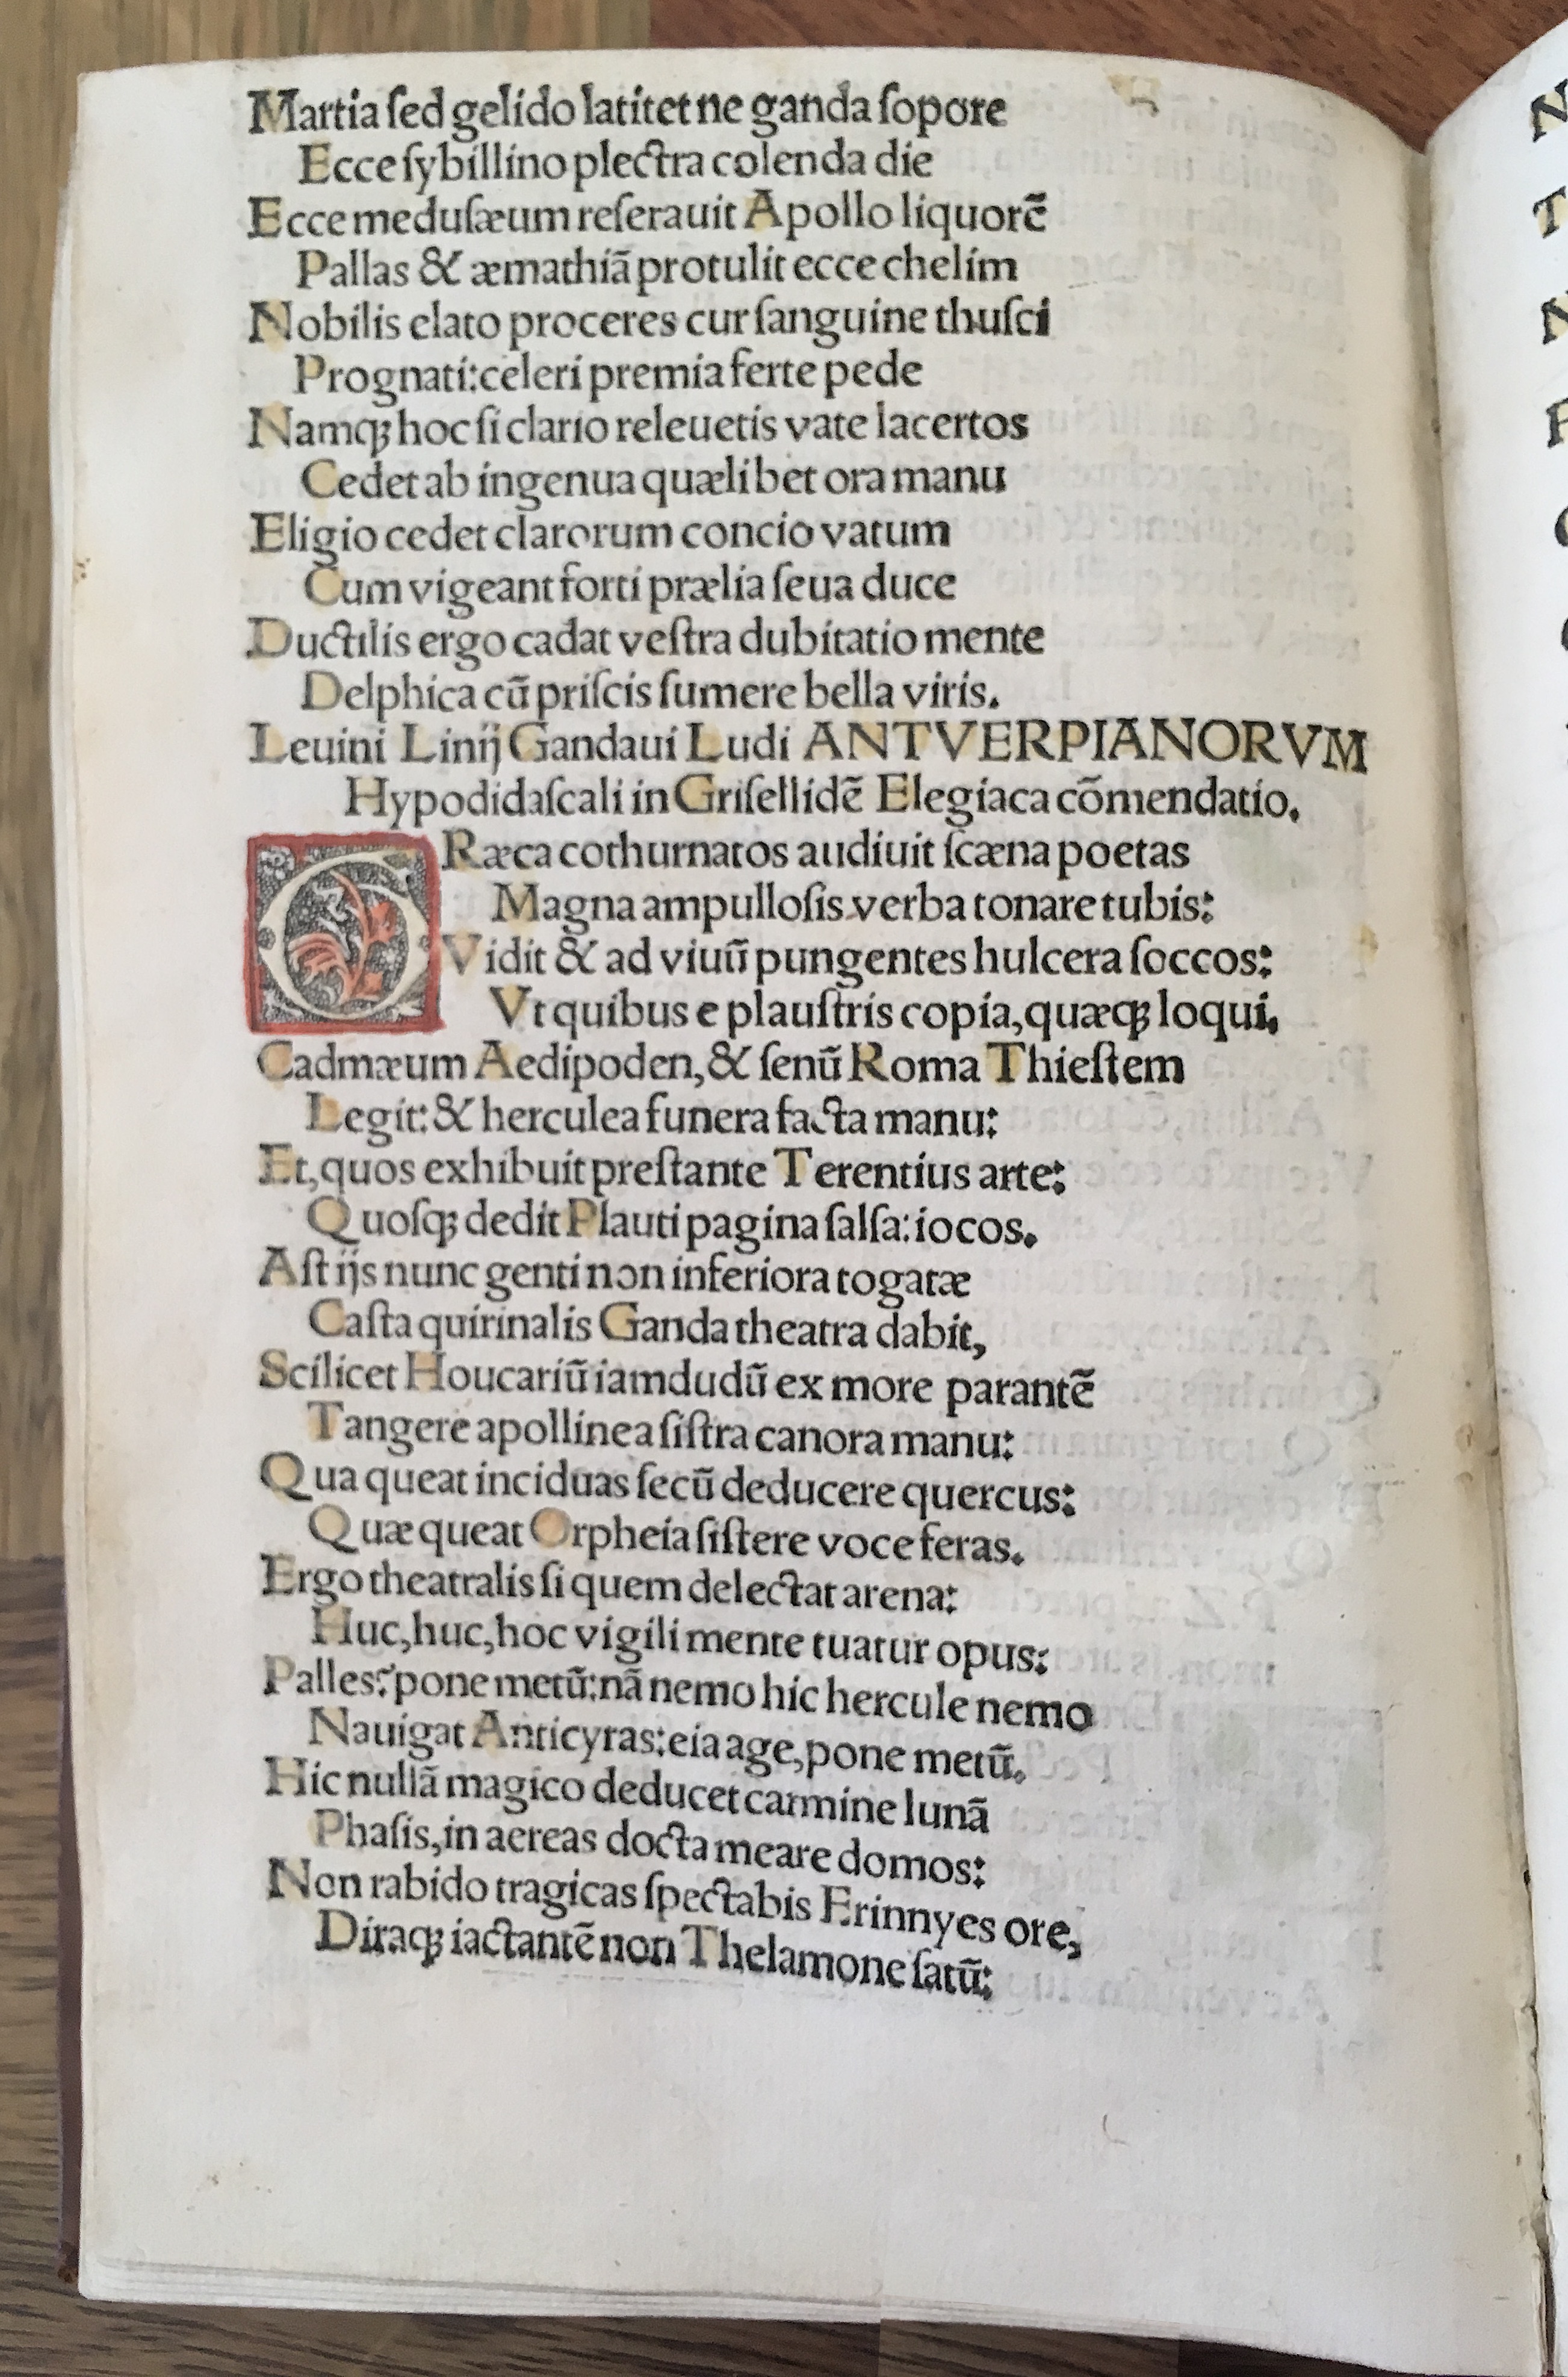 Martia ſed gelido latitet ne ganda ſopore
Ecce ſybillino plectra colenda die
Ecce meduſæum reſerauit Apollo liquorē
Pallas & æmathiā protulit ecce chelim
Nobilis elato proceres cur ſanguine thuſci
Prognati:celeri premia ferte pede
Namqꝫ hoc ſi clario releuetis vate lacertos
Cedet ab ingenua quælibet ora manu
Eligio cedet clarorum concio vatum
Cum vigeant forti prælia ſeua duce
Ductilis ergo cadat veſtra dubitatio mente
Delphica cū priſcis ſumere bella viris.
Leuini Linij Gandaui Ludi ANTVERPIANORVM
Hypodidaſcali in Griſellidē Elegiaca cōmendatio.
GRæca cothurnatos audiuit ſcæna poetas
Magna ampulloſis verba tonare tubis:
Vidit & ad viuū pungentes hulcera ſoccos:
Vt quibus e plauſtris copia,quæqꝫ loqui.
Cadmæum Aedipoden,& ſenū Roma Thieſtem
Legit:& herculea funera facta manu:
Et,quos exhibuit preſtante Terentius arte:
Quoſqꝫ dedit Plauti pagina ſalſa:iocos.
Aſt ijs nunc genti non inferiora togatæ
Caſta quirinalis Ganda theatra dabit,
Scilicet Houcariū iamdudū ex more parantē
Tangere apollinea ſiſtra canora manu:
Qua queat inciduas ſecū deducere quercus:
Quæ queat Orpheia ſiſtere voce feras.
Ergo theatralis ſi quem delectat arena:
Huc,huc,hoc vigili mente tuatur opus:
Palles?pone metū:nā nemo hic hercule nemo
Nauigat Anticyras:eia age,pone metū.
Hic nullā magico deducet carmine lunā
Phaſis,in aereas docta meare domos:
Non rabido tragicas ſpectabis Erinnyes ore,
Diraqꝫ iactantē non Thelamone ſatū: